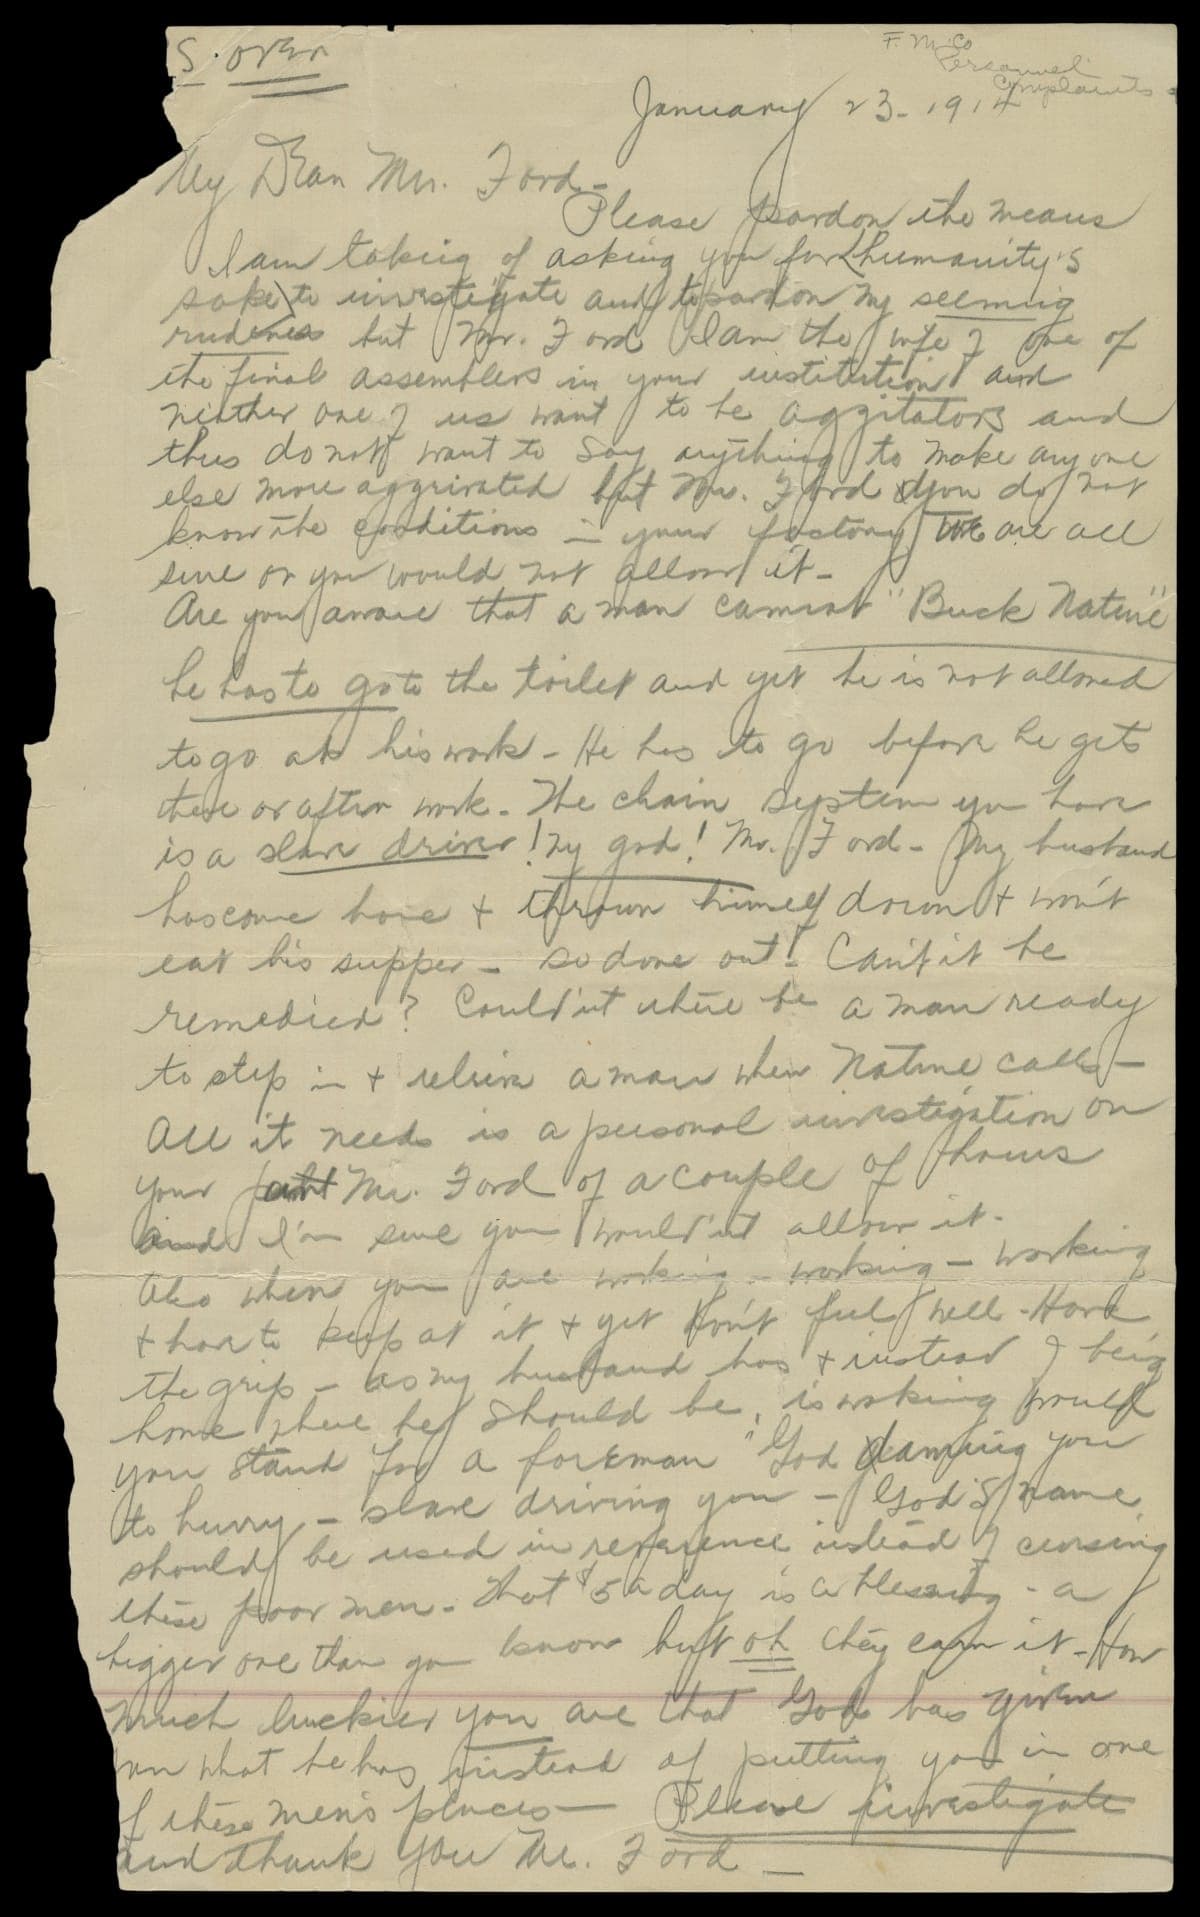 S. over
F. M. Co
Personnel
Complaints
January 23 - 1914
My Dear Mr. Ford -
Please pardon the means
I am taking of asking you for humanity's
sake to investigate and to pardon my seeming
rudeness but Mr. Ford I am the wife of one of
the final assemblers in your institution and
neither one of us want to be aggitators and
thus do not want to say anything to make any one
else more aggrivated but Mr. Ford you do not
know the conditions in your factory we are all
sure or you would not allow it -
Are you aware that a man cannot "Buck Nature"
he has to go to the toilet and yet he is not allowed
to go at his work - He has to go before he gets
there or after work. The chain system you have
is a slave driver! My god! Mr. Ford - My husband
has come home & thrown himself down & won't
eat his supper - so done out! Can't it be
remedied? Could'nt there be a man ready
to step in & relieve a man when Nature calls -
All it needs is a personal investigation on
your part Mr. Ford of a couple of hours
and I'm sure you would'nt allow it -
Also when you are working - working - working
& have to keep at it & yet don't feel well - Have
the grip - as my husband has & instead of being
home where he should be, is working would
you stand for a foreman "God damning you
to hurry - slave driving you - God's name
should be used in reverence instead of cursing
these poor men - That $5 a day is a blessing - a
bigger one than you know but oh they earn it - How
much luckier you are that God has given
you what he has instead of putting you in one
of these men's places - Please investigate
and thank you Mr. Ford -